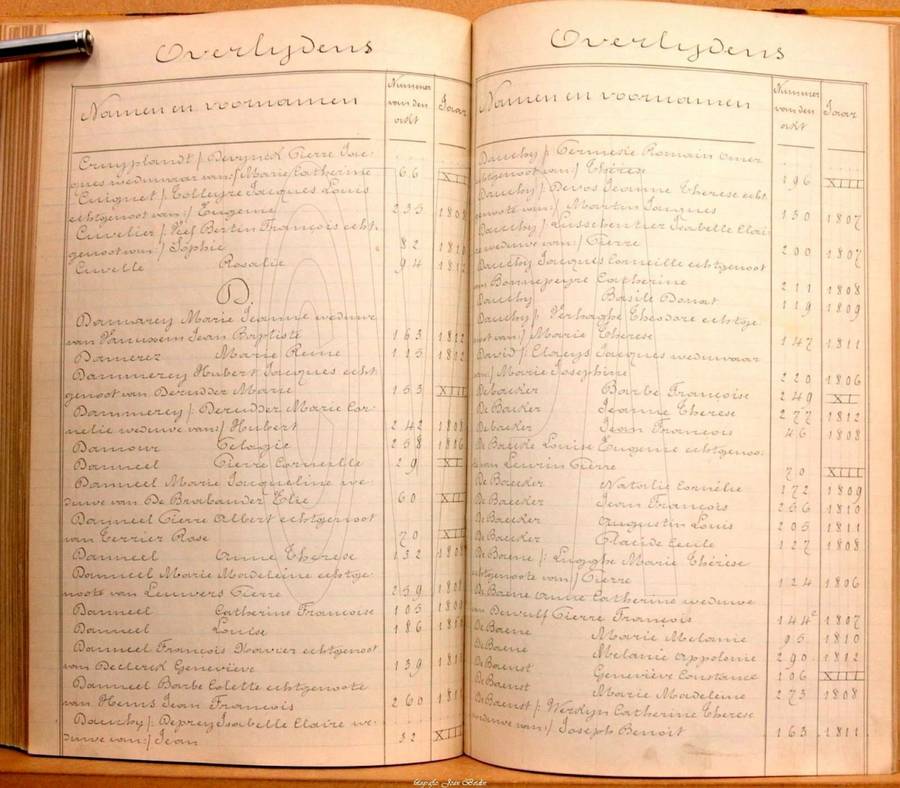 Overlijdens
Namen en voornamen
Nummer van den akt
Jaar
Cruyplandt /: Devynck Pierre Jac-
ques weduwaar van:/ Marie Catherine 66 XII
Cuignet /: Tolleyre Jacques Louis
echtgenoot van:/ Eugenie 235 1808
Cuvelier /: Bertin François echt-
genoot van:/ Sophie 82
Cuvelle Rosalie 94
D.
Damarey Marie Jeanne weduwe
van Jean Baptiste 163 1812
Damerez Marie Reine 115 1812
Dammerey Hubert Jacques echt-
genoot van Derudder Marie 153 XIII
Dammerey /: Derudder Marie Cor-
nelie weduwe van:/ Hubert 242 1808
Damour Pelagie 258
Danneel Pierre Corneille 29 XI
Danneel Marie Jacqueline we-
duwe van De Brabander Elie 60
Danneel Pierre Albert echtgenoot
van Terrier Rose 70
Danneel Anne Therese 132
Danneel Marie Madeleine echtge-
noote van Leuvers Pierre 259
Danneel Catherine Françoise 105
Danneel Louise 186
Danneel François Xavier echtgenoot
van Declerck Geneviève 139
Danneel Barbe Colette echtgenoote
van Henis Jean François 260
Dauchy /: Deprey Isabelle Claire we-
duwe van:/ Jean 32
Overlijdens
Namen en voornamen
Nummer van den akt
Jaar
Dauchy /: Romain Omer
echtgenoot van:/ Thérèse 196 XIII
Dauchy /: Devos Jeanne Therese echt-
genoote van:/ Martin Jacques 130 1807
Dauchy /: Isabelle Clai-
re weduwe van:/ Pierre 200 1807
Dauchy Jacques Corneille echtgenoot
van Bonnepeyre Catherine 211 1808
Dauchy Basile Donat 119 1809
Dauchy /: Verhaghe Theodore echtge-
noot van:/ Marie Therese 147 1811
David /: Claeys Jacques weduwaar
van:/ Marie Josephine 220 1806
Debaeker Barbe Françoise 249 XI
De Baeker Jeanne Therese 277 1812
Debaeker Jean François 46 1808
De Baecke Louise Eugenie echtgenoo-
te van Leurin Pierre 70 XIII
De Baecker Natalie Cornélie 172 1809
De Baecker Jean François 256 1810
De Baecker Augustin Louis 205 1811
De Baecker Placide Cecile 127 1808
De Baene /: Lugghe Marie Thérèse
echtgenoote van:/ Pierre 124 1806
De Baene Anne Catherine weduwe
van Dewulf Pierre François 144² 1807
De Baene Marie Melanie 95 1810
De Baene Melanie Appolonie 290 1812
De Baenst Geneviève Constance 106 XIII
De Baenst Marie Madeleine 273 1808
De Baenst /: Werdyn Catherine Therese
weduwe van:/ Joseph Benoit 163 1811